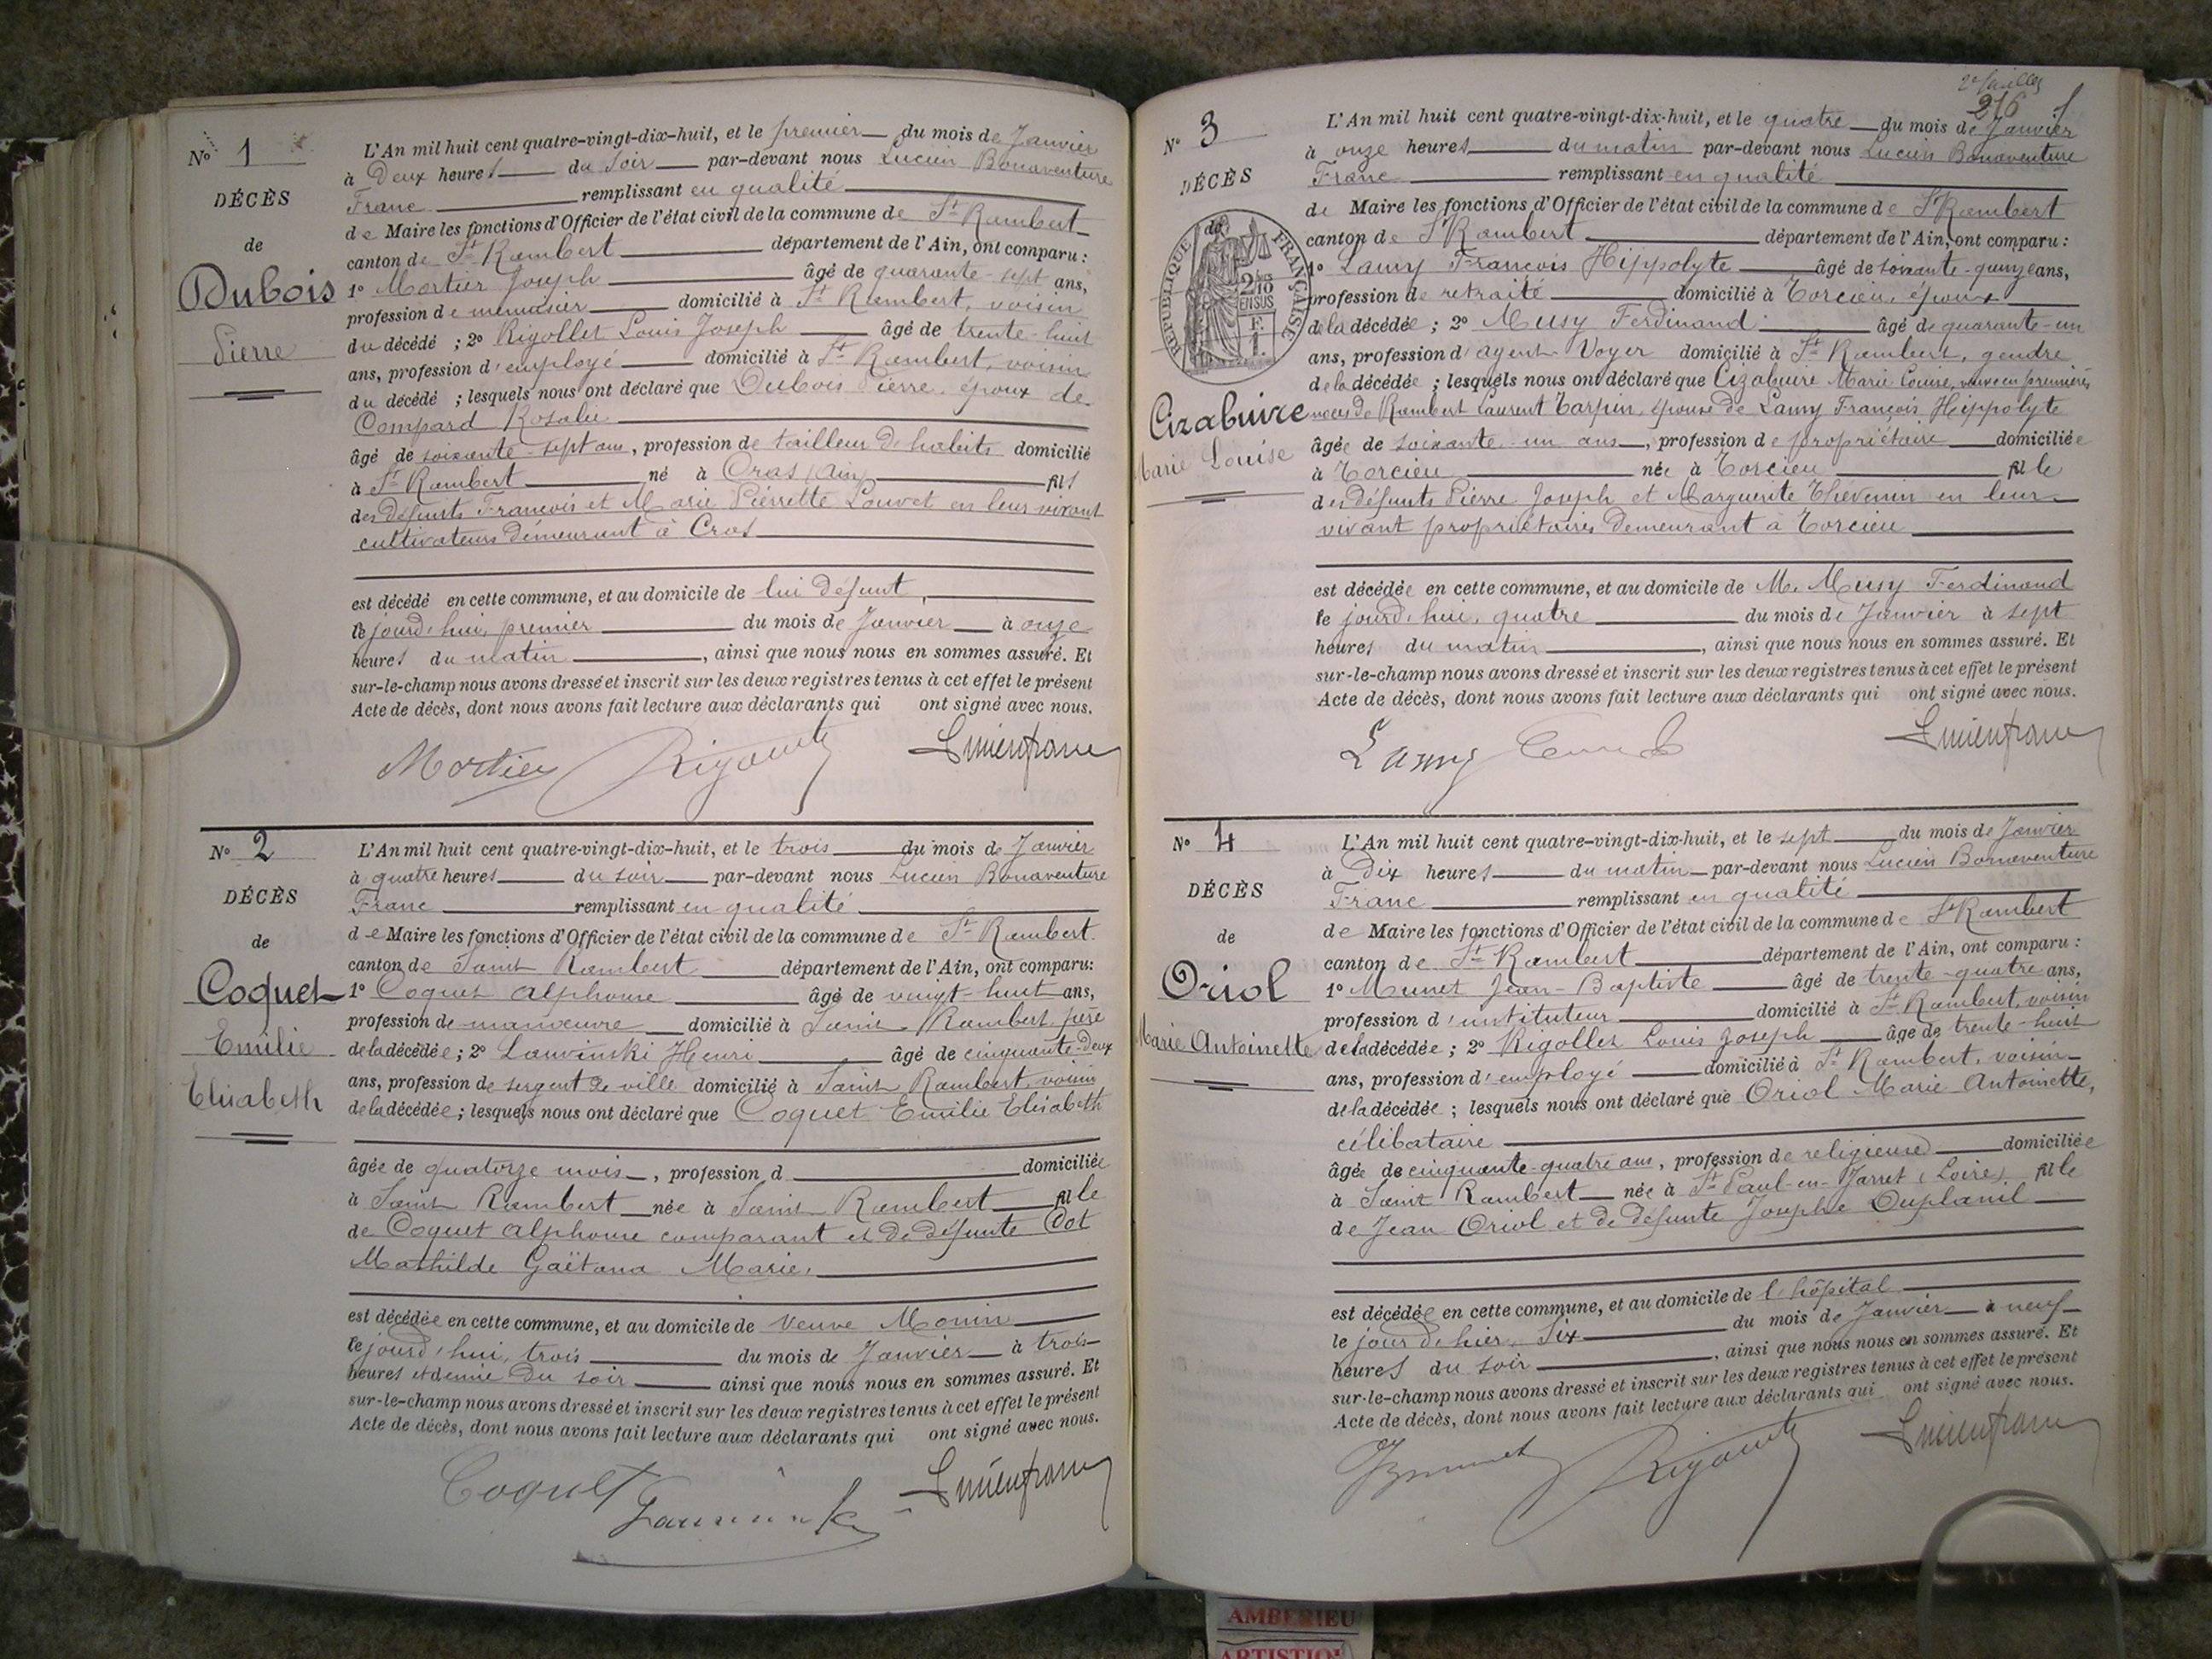 Nº 1
DÉCÈS
de
Dubois
Pierre
L'An mil huit cent quatre-vingt-dix-huit, et le premier du mois de Janvier
à Deux heures du soir par-devant nous Lucien Bonaventure
Franc remplissant en qualité
de Maire les fonctions d'Officier de l'état civil de la commune de St Rambert
canton de St Rambert département de l'Ain, ont comparu :
1º Mortier Joseph âgé de quarante-sept ans,
profession de menuisier domicilié à St Rambert, voisin
du décédé ; 2º Rigollet Louis Joseph âgé de trente-huit
ans, profession d'employé domicilié à St Rambert, voisin
du décédé ; lesquels nous ont déclaré que Dubois Pierre, époux de
Compard Rosalie
âgé de soixante-sept ans, profession de tailleur d'habits domicilié
à St Rambert né à Cras (Ain) fils
des défunts François et Marie Pierrette Louvet en leur vivant
cultivateurs demeurant à Cras
est décédé en cette commune, et au domicile de lui défunt,
le jourd'hui, premier du mois de Janvier à onze
heures du matin, ainsi que nous nous en sommes assuré. Et
sur-le-champ nous avons dressé et inscrit sur les deux registres tenus à cet effet le présent
Acte de décès, dont nous avons fait lecture aux déclarants qui ont signé avec nous.
Mortier Rigollet Lucien franc
Nº 2
DÉCÈS
de
Coquet
Emilie
Elisabeth
L'An mil huit cent quatre-vingt-dix-huit, et le trois du mois de Janvier
à quatre heures du soir par-devant nous Lucien Bonaventure
Franc remplissant en qualité
de Maire les fonctions d'Officier de l'état civil de la commune de St Rambert
canton de Saint Rambert département de l'Ain, ont comparu :
1º Coquet Alphonse âgé de vingt-huit ans,
profession de manœuvre domicilié à Saint Rambert, père
de la décédée ; 2º Lauvinski Henri âgé de cinquante-deux
ans, profession de sergent de ville domicilié à Saint Rambert, voisin
de la décédée ; lesquels nous ont déclaré que Coquet Emilie Elisabeth
âgée de quatorze mois, profession d domiciliée
à Saint Rambert née à Saint Rambert fille
de Coquet Alphonse comparant et de défunte Cot
Mathilde Gaëtana Marie,
est décédée en cette commune, et au domicile de Veuve Monin
le jourd'hui, trois du mois de Janvier à trois
heures et demie du soir ainsi que nous nous en sommes assuré. Et
sur-le-champ nous avons dressé et inscrit sur les deux registres tenus à cet effet le présent
Acte de décès, dont nous avons fait lecture aux déclarants qui ont signé avec nous.
Coquet Lucien franc
216
Nº 3
DÉCÈS
de
RÉPUBLIQUE FRANÇAISE
2/10 EN SUS
F.
1.
Cizabuire
Marie Louise
L'An mil huit cent quatre-vingt-dix-huit, et le quatre du mois de Janvier
à onze heures du matin par-devant nous Lucien Bonaventure
Franc remplissant en qualité
de Maire les fonctions d'Officier de l'état civil de la commune de St Rambert
canton de St Rambert département de l'Ain, ont comparu :
1º Lamy François Hippolyte âgé de soixante-quinze ans,
profession de retraité domicilié à Torcieu, époux
de la décédée ; 2º Musy Ferdinand âgé de quarante-un
ans, profession d'agent Voyer domicilié à St Rambert, gendre
de la décédée ; lesquels nous ont déclaré que Cizabuire Marie Louise, veuve en premières
noces de Rambert Laurent Tarpin, épouse de Lamy François Hippolyte
âgée de soixante-un ans, profession de propriétaire domiciliée
à Torcieu née à Torcieu fille
des défunts Pierre Joseph et Marguerite Thévenin en leur
vivant propriétaires demeurant à Torcieu
est décédée en cette commune, et au domicile de M. Musy Ferdinand
le jourd'hui, quatre du mois de Janvier à sept
heures du matin, ainsi que nous nous en sommes assuré. Et
sur-le-champ nous avons dressé et inscrit sur les deux registres tenus à cet effet le présent
Acte de décès, dont nous avons fait lecture aux déclarants qui ont signé avec nous.
Lamy Lucien franc
Nº 4
DÉCÈS
de
Oriol
Marie Antoinette
L'An mil huit cent quatre-vingt-dix-huit, et le sept du mois de Janvier
à Dix heures du matin par-devant nous Lucien Bonaventure
Franc remplissant en qualité
de Maire les fonctions d'Officier de l'état civil de la commune de St Rambert
canton de St Rambert département de l'Ain, ont comparu :
1º Munet Jean-Baptiste âgé de trente-quatre ans,
profession d'instituteur domicilié à St Rambert, voisin
de la décédée ; 2º Rigollet Louis Joseph âgé de trente-huit
ans, profession d'employé domicilié à St Rambert, voisin
de la décédée ; lesquels nous ont déclaré que Oriol Marie Antoinette,
célibataire
âgée de cinquante-quatre ans, profession de religieuse domiciliée
à Saint Rambert née à St Paul-en-Jarret (Loire) fille
de Jean Oriol et de défunte Josephe Duplanil
est décédée en cette commune, et au domicile de l'hôpital
le jour d'hier, Six du mois de Janvier à neuf
heures du soir, ainsi que nous nous en sommes assuré. Et
sur-le-champ nous avons dressé et inscrit sur les deux registres tenus à cet effet le présent
Acte de décès, dont nous avons fait lecture aux déclarants qui ont signé avec nous.
Rigollet Lucien franc
AMBERIEU